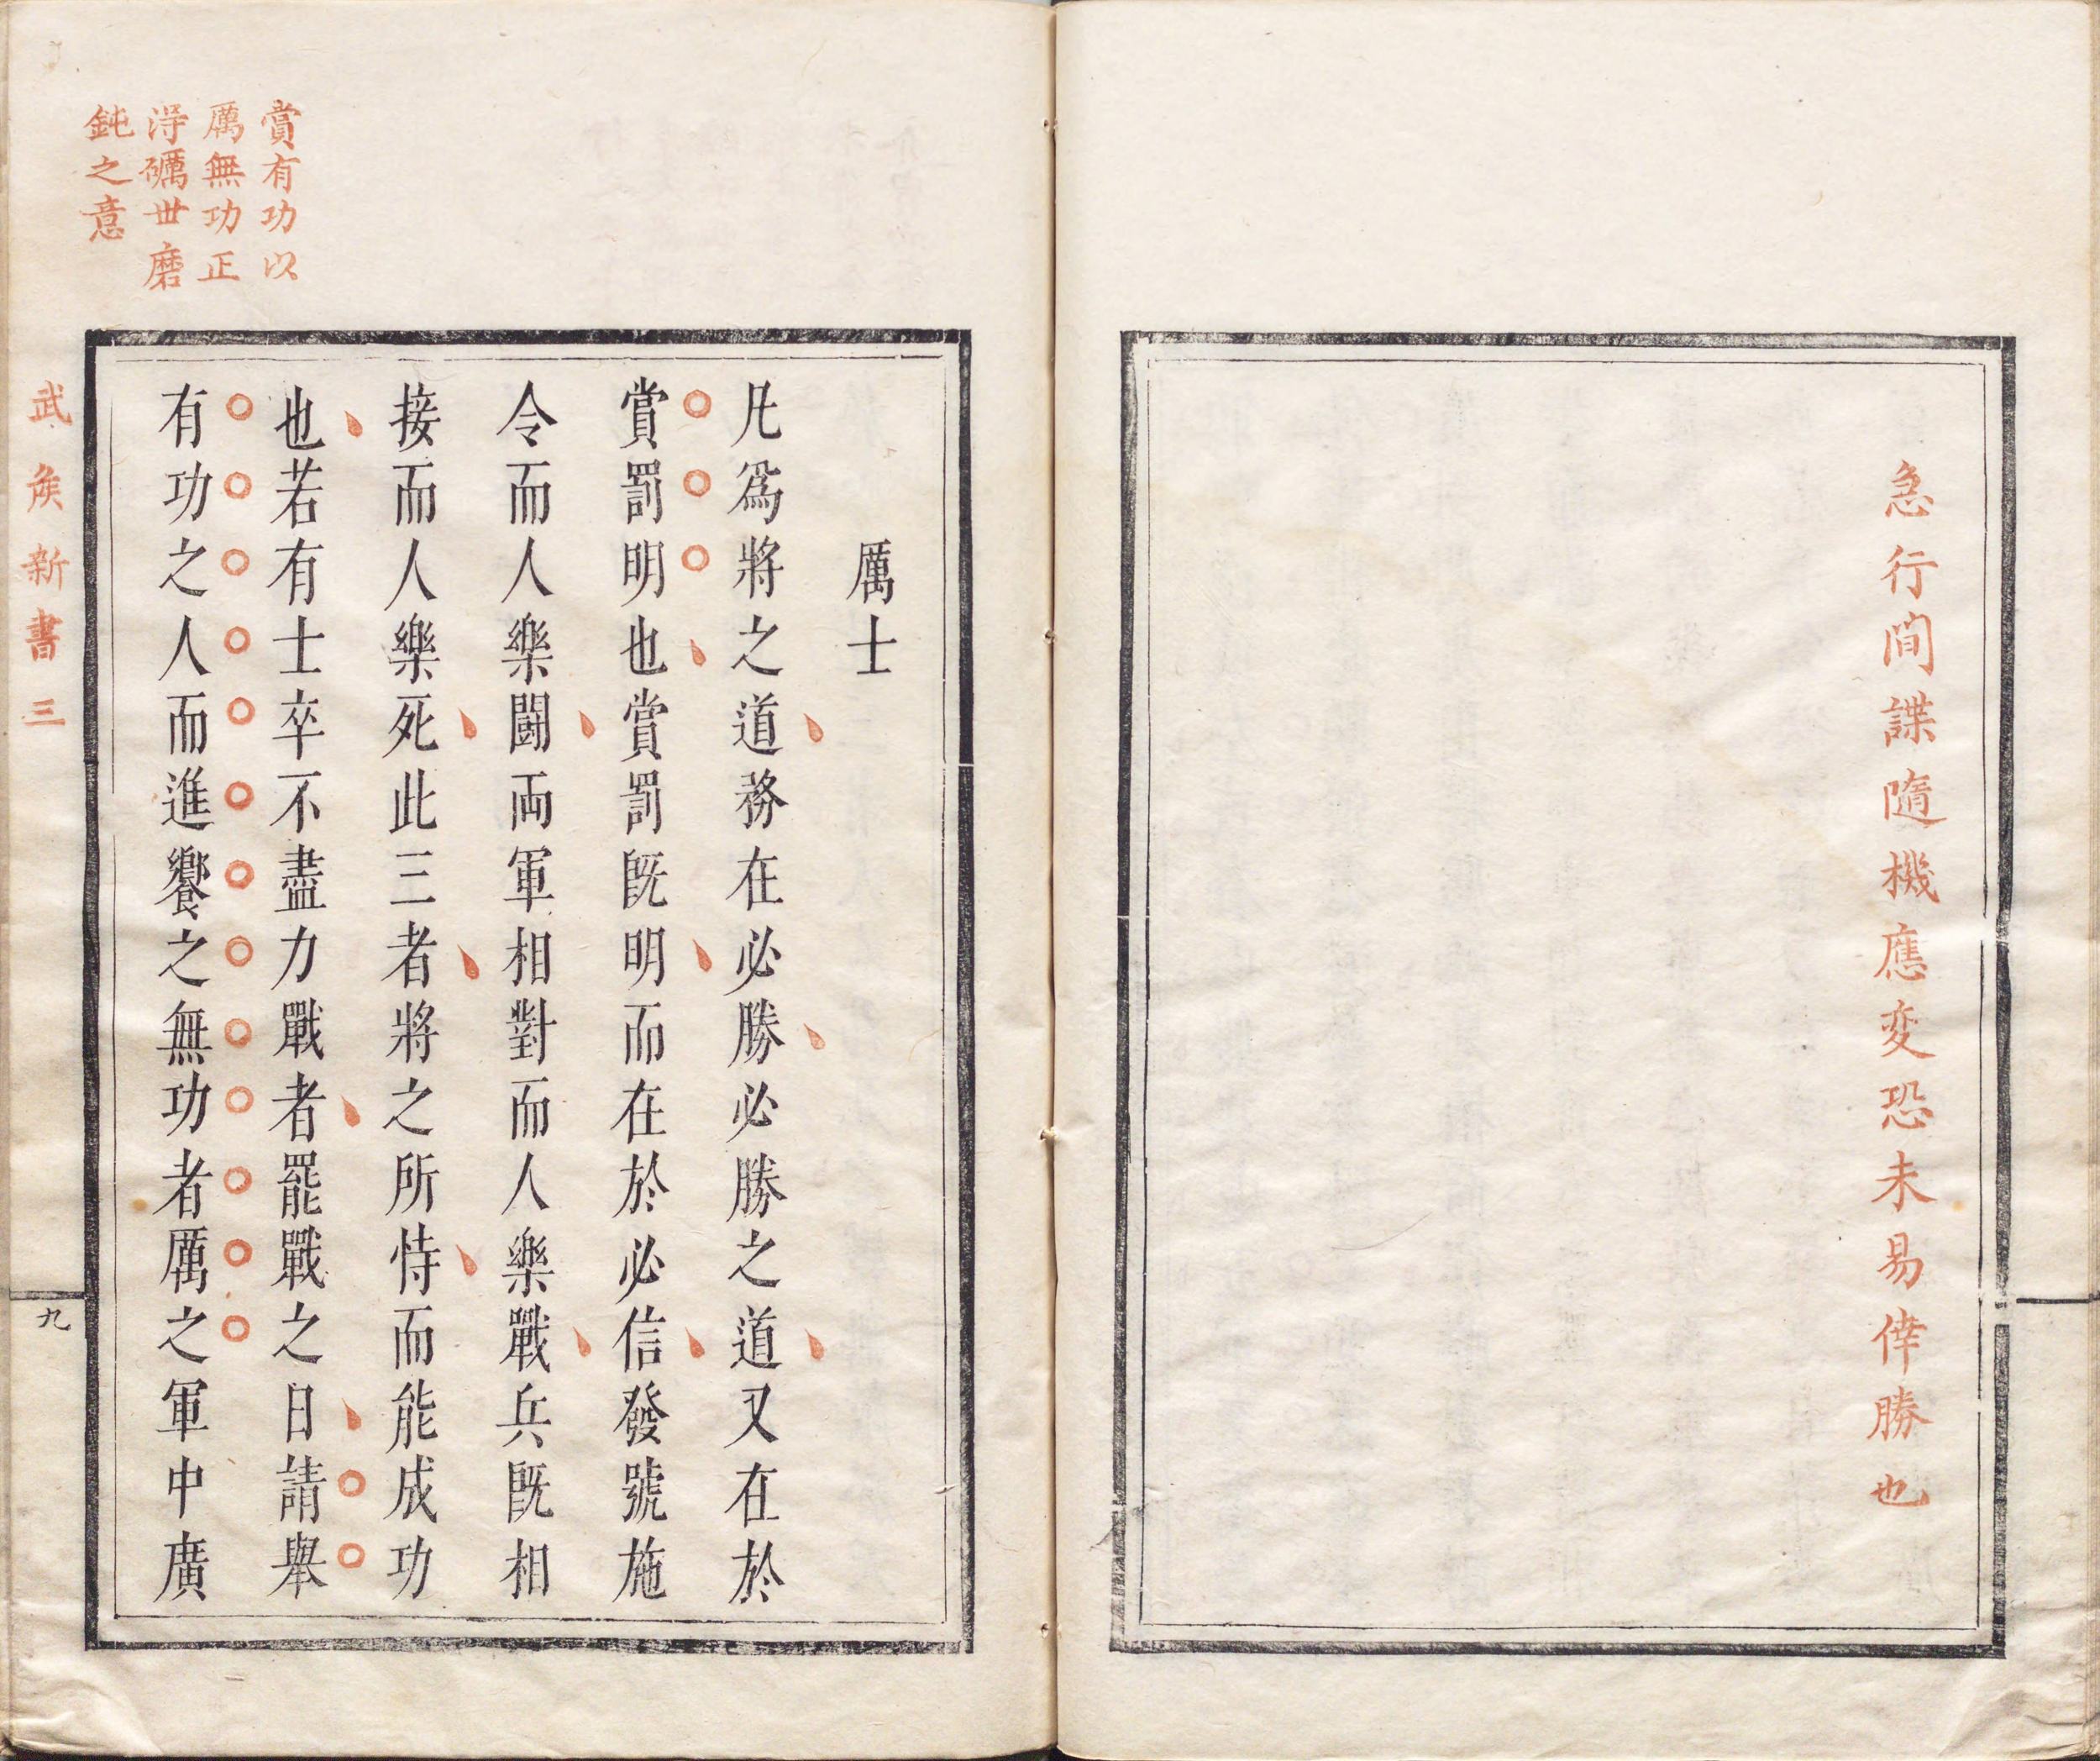 急行間諜隨機應変恐未易倖勝也
賞有功以
厲無功正
淂礪世磨
鈍之意
厲士
凡爲將之道務在必勝必勝之道又在於
賞罰明也賞罰旣明而在於必信發號施
令而人樂鬭両軍相對而人樂戰兵旣相
接而人樂死此三者將之所恃而能成功
也若有士卒不盡力戰者罷戰之日請舉
有功之人而進饗之無功者厲之軍中廣
武侯新書三
九